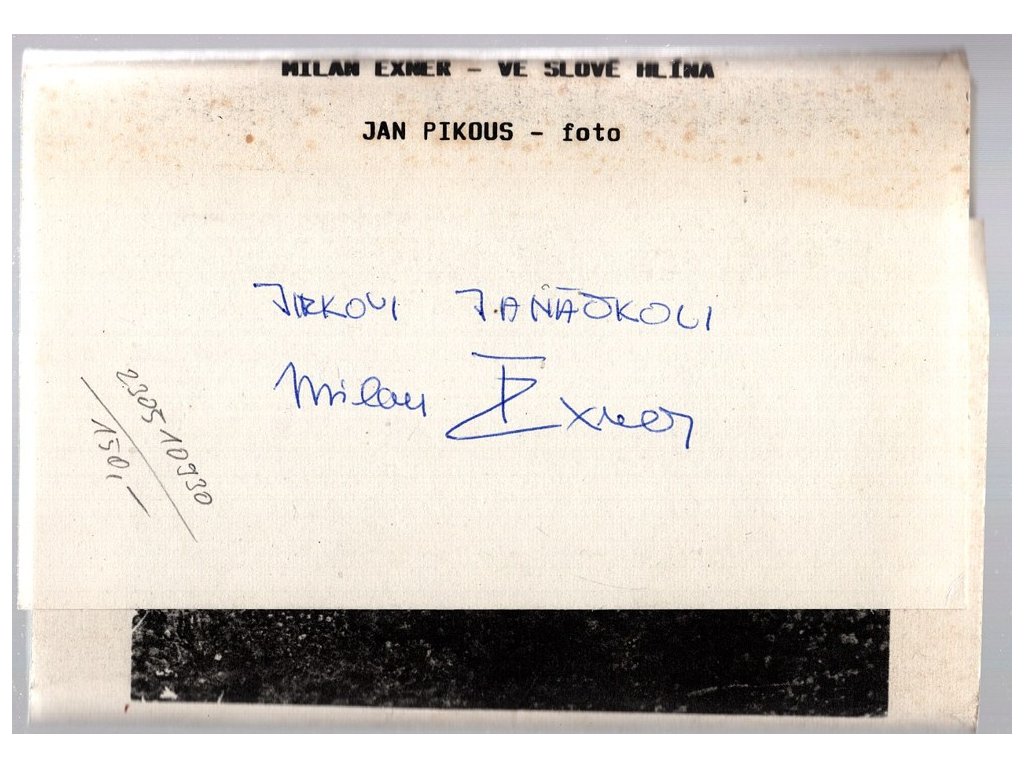 MILAN EXNER – VE SLOVĚ HLÍNA
JAN PIKOUS – foto
JIRKOVI JANÁČKOVI
Milan Exner
230510930
150,-